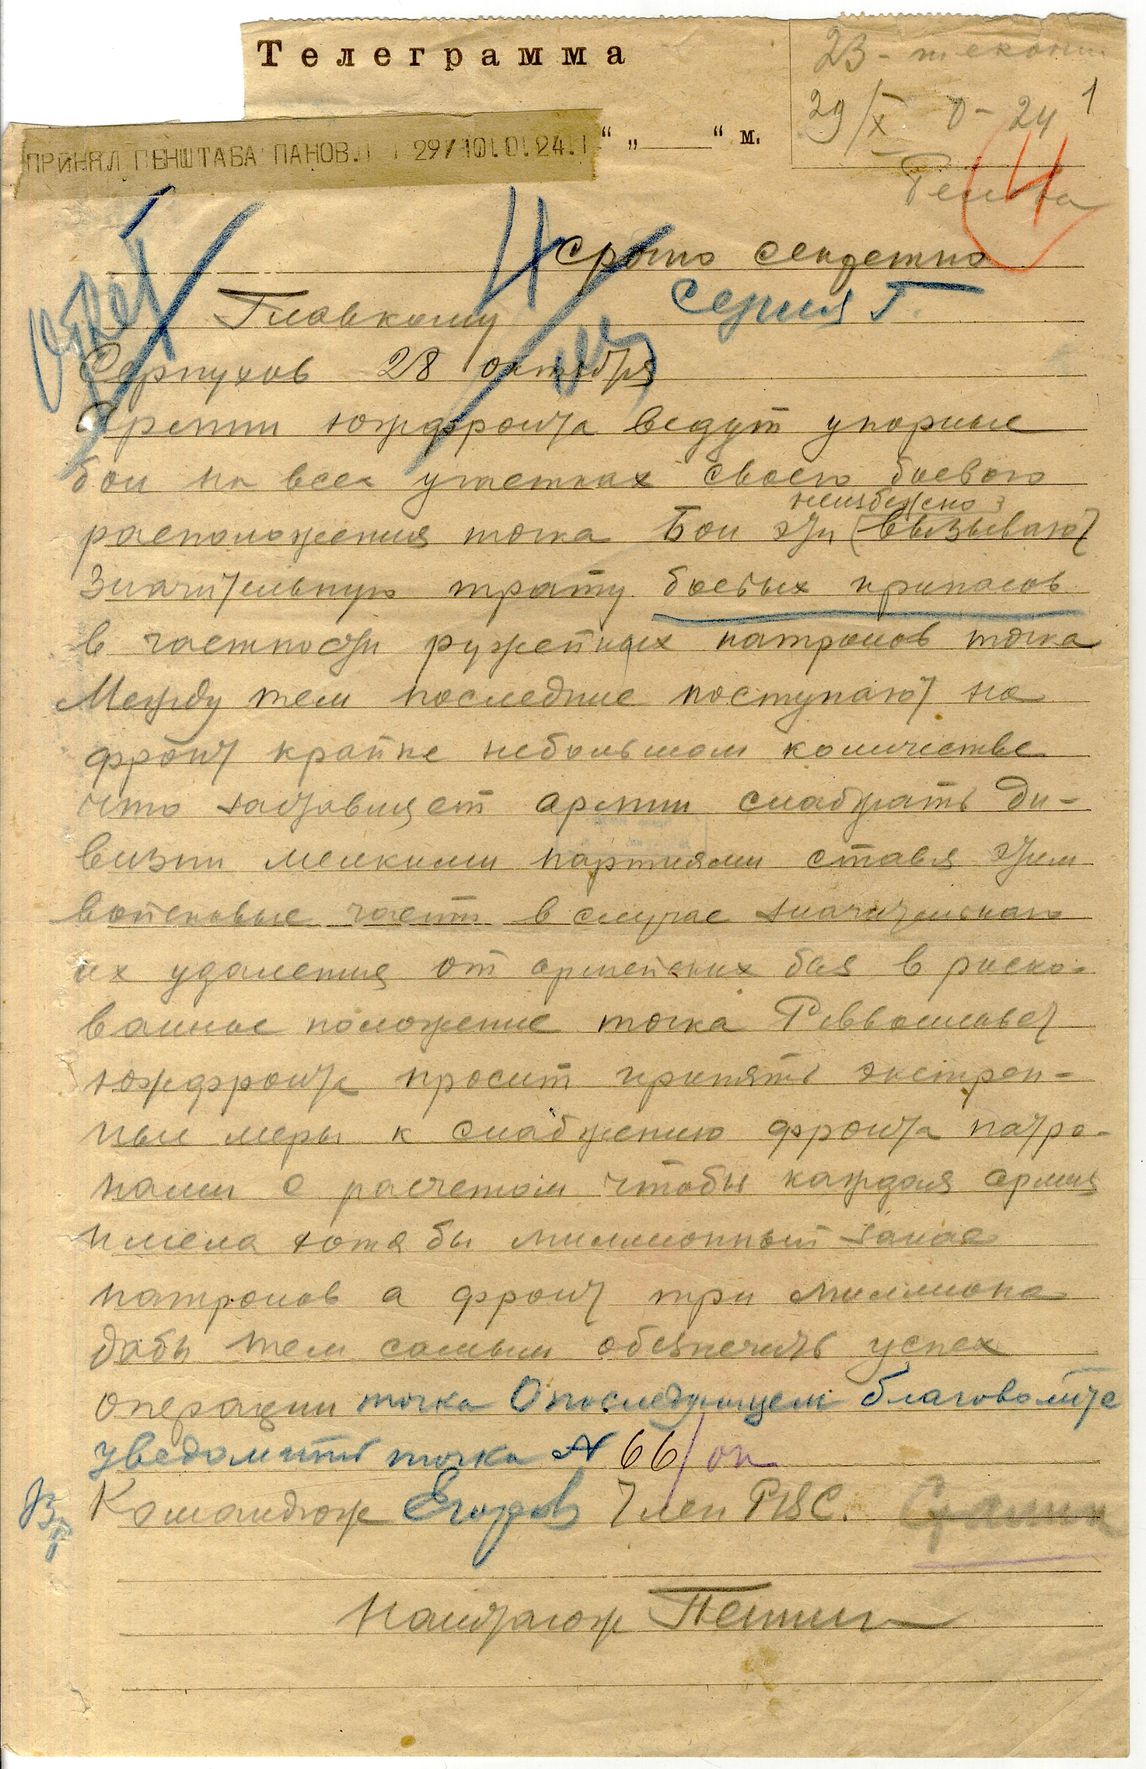 Телеграмма
29/X 0-24 1
" „ " м.
ПРИНЯЛ ГЕНШТАБА ПАНОВ. 29/10.0.24.
4
срочно секретно
Серия Г.
Главкому
Серпухов 28 октября
Армии южфронта ведут упорные
бои на всех участках своего боевого
неизбежно
расположения точка Бои эти (вызывают
значительную трату боевых припасов
в частности ружейных патронов точка
Между тем последние поступают на
фронт крайне небольшом количестве
что заставляет армии снабжать ди-
визии мелкими партиями ставя этим
войсковые части в случае значительнаго
их удаления от армейских баз в риско-
ванное положение точка Реввоенсовет
южфронта просит принять экстрен-
ные меры к снабжению фронта патро-
нами с расчетом чтобы каждая армия
имела хотя бы миллионный запас
патронов а фронт три миллиона
дабы тем самым обезпечить успех
операции точка О последующем благоволите
уведомить точка № 66/оп
Командюж Егоров Член РВС. Сталин
Наштаюж Петин